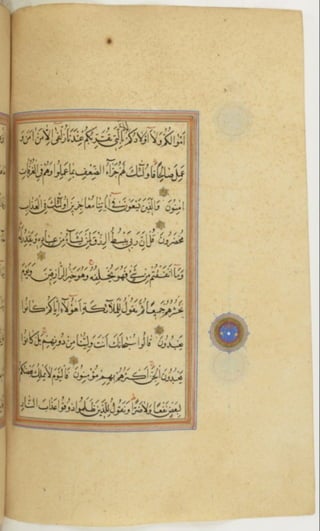 اموالكم ولا اولادكم بالتي تقربكم عندنا زلفى الا من امن و
عمل صالحا فاولئك لهم جزاء الضعف بما عملوا وهم في الغرفات
امنون والذين يسعون في اياتنا معاجزين اولئك في العذاب
محضرون قل ان ربي يبسط الرزق لمن يشاء من عباده ويقدر له
وما انفقتم من شيء فهو يخلفه وهو خير الرازقين ويوم
يحشرهم جميعا ثم يقول للملائكة اهؤلاء اياكم كانوا
يعبدون قالوا سبحانك انت ولينا من دونهم بل كانوا
يعبدون الجن اكثرهم بهم مؤمنون فاليوم لا يملك بعضكم
لبعض نفعا ولا ضرا ونقول للذين ظلموا ذوقوا عذاب النار